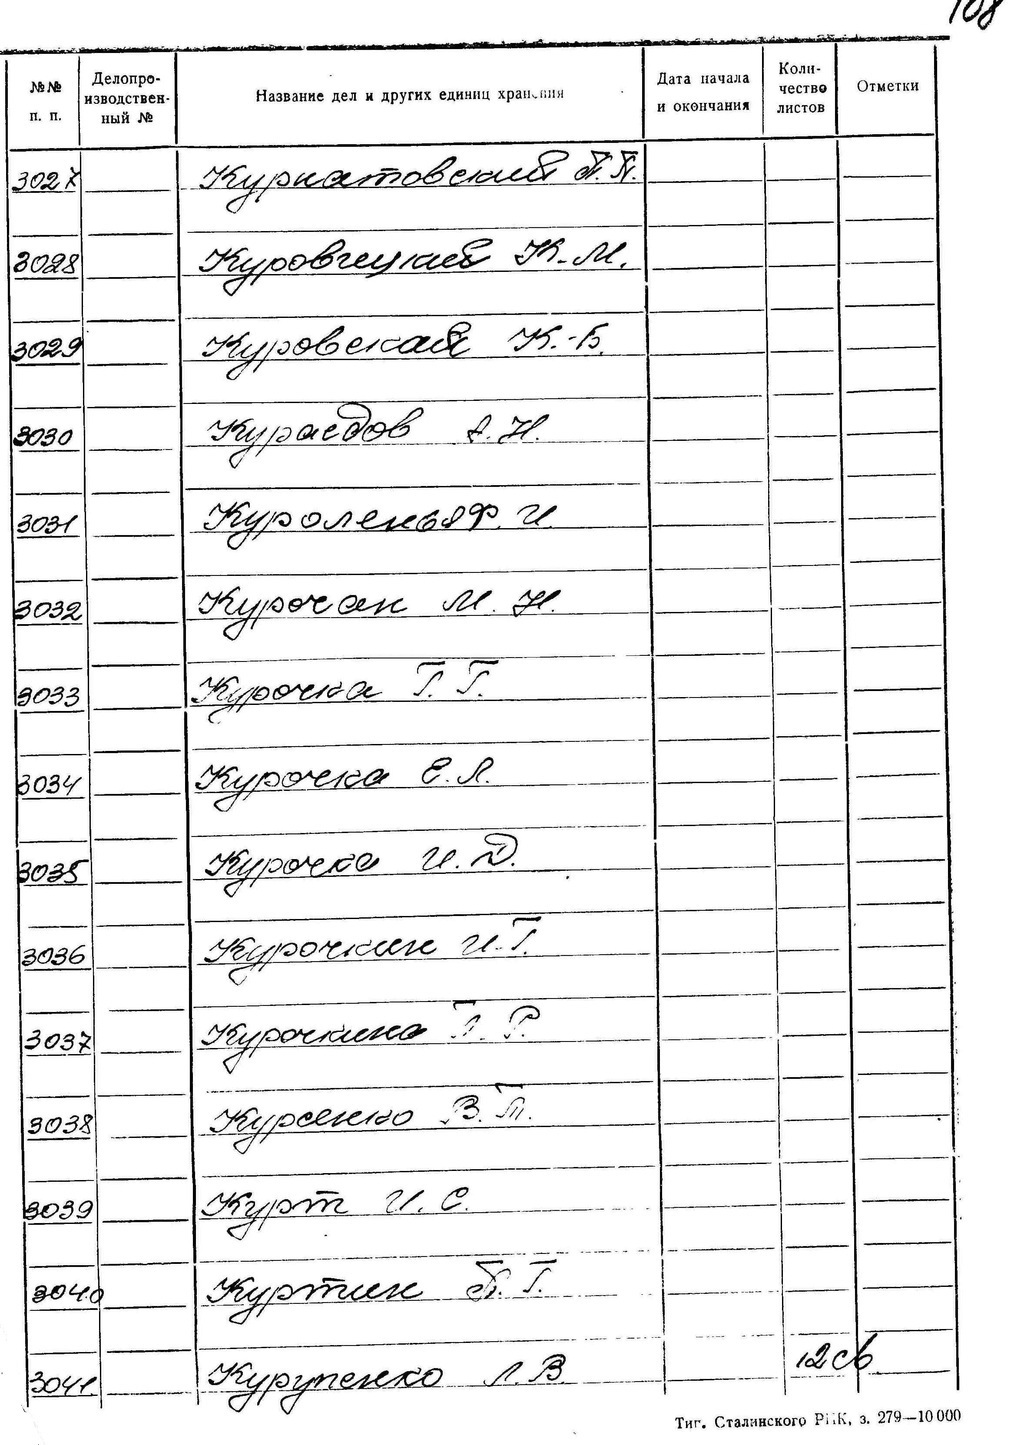 108
№№ п. п. Делопро-изводствен-ный № Название дел и других единиц хранения Дата начала и окончания Коли-чество листов Отметки
3027 Курнатовский П. П.
3028 К. М.
3029 Куровская К. Б.
3030 А. Н.
3031 Ф. И.
3032 Курочан М. Н.
3033 Курочка Г. Г.
3034 Курочка Е. Л.
3035 Курочка И. Д.
3036 Курочкин И. Г.
3037 Курочкина Г. Р.
3038 Курсенко В. П.
3039 Курт И. С.
3040 Куртин П. Г.
3041 Курупенко Л. В. 12 св
Тип. Сталинского РИК, з. 279—10 000